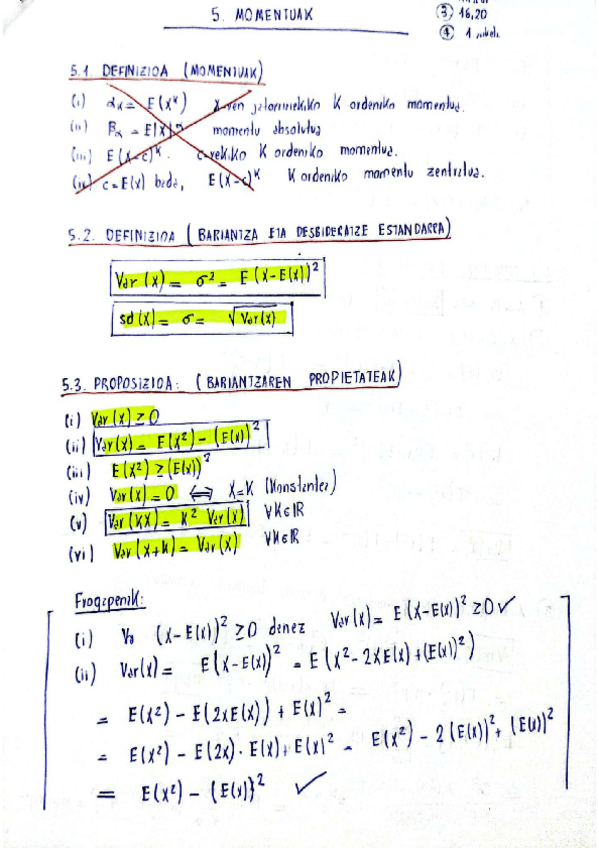 5. MOMENTUAK
③ 16,20
④
5.1. DEFINIZIOA (MOMENTUAK)
(i) αₖ = E(Xᵏ) X-ren jatorriarekiko K ordeniko momentua.
(ii) momentu absolutua
(iii) E(X-c)ᵏ. c-rekiko K ordeniko momentua.
(iv) c=E(X) bada, E(X-c)ᵏ K ordeniko momentu zentratua.
5.2. DEFINIZIOA (BARIANTZA ETA DESBIDERATZE ESTANDARRA)
Var(X) = σ² = E(X-E(X))²
sd(X) = σ = √Var(X)
5.3. PROPOSIZIOA: (BARIANTZAREN PROPIETATEAK)
(i) Var(X) ≥ 0
(ii) Var(X) = E(X²) - (E(X))²
(iii) E(X²) ≥ (E(X))²
(iv) Var(X) = 0 ⟺ X=K (Konstantea)
(v) Var(KX) = K² Var(X) ∀K∈ℝ
(vi) Var(X+K) = Var(X) ∀K∈ℝ
Frogapenak:
(i) (X-E(X))² ≥ 0 denez Var(X) = E(X-E(X))² ≥ 0 ✓
(ii) Var(X) = E(X-E(X))² = E(X² - 2XE(X) + (E(X))²)
= E(X²) - E(2XE(X)) + E(X)² =
= E(X²) - E(2X)·E(X) + E(X)² = E(X²) - 2(E(X))² + (E(X))²
= E(X²) - (E(X))² ✓